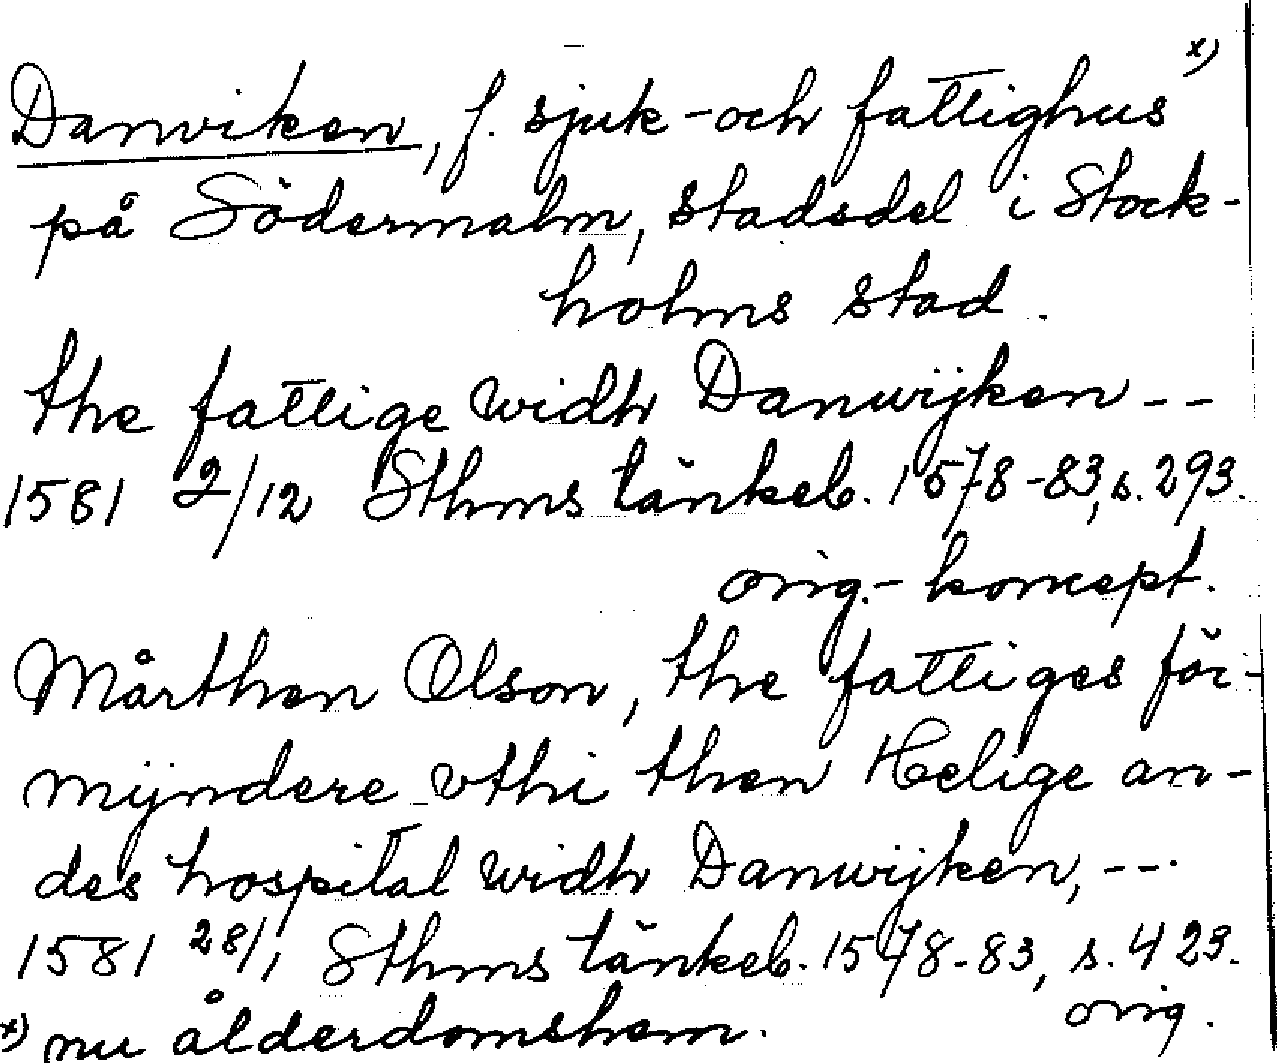 Danviken, f. sjuk- och fattighus x)
på Södermalm, stadsdel i Stock-
holms stad.
the fattige widh Danwijken --
1581 2/12 Sthms tänkeb. 1578-83, s. 293.
orig.-koncept.
Mårthen Olson, the fattiges för-
mÿndere vthi then Helige an-
des hospital widh Danwijken, ---
1581 28/1 Sthms tänkeb. 1578-83, s. 423.
orig.
x) nu ålderdomshem.